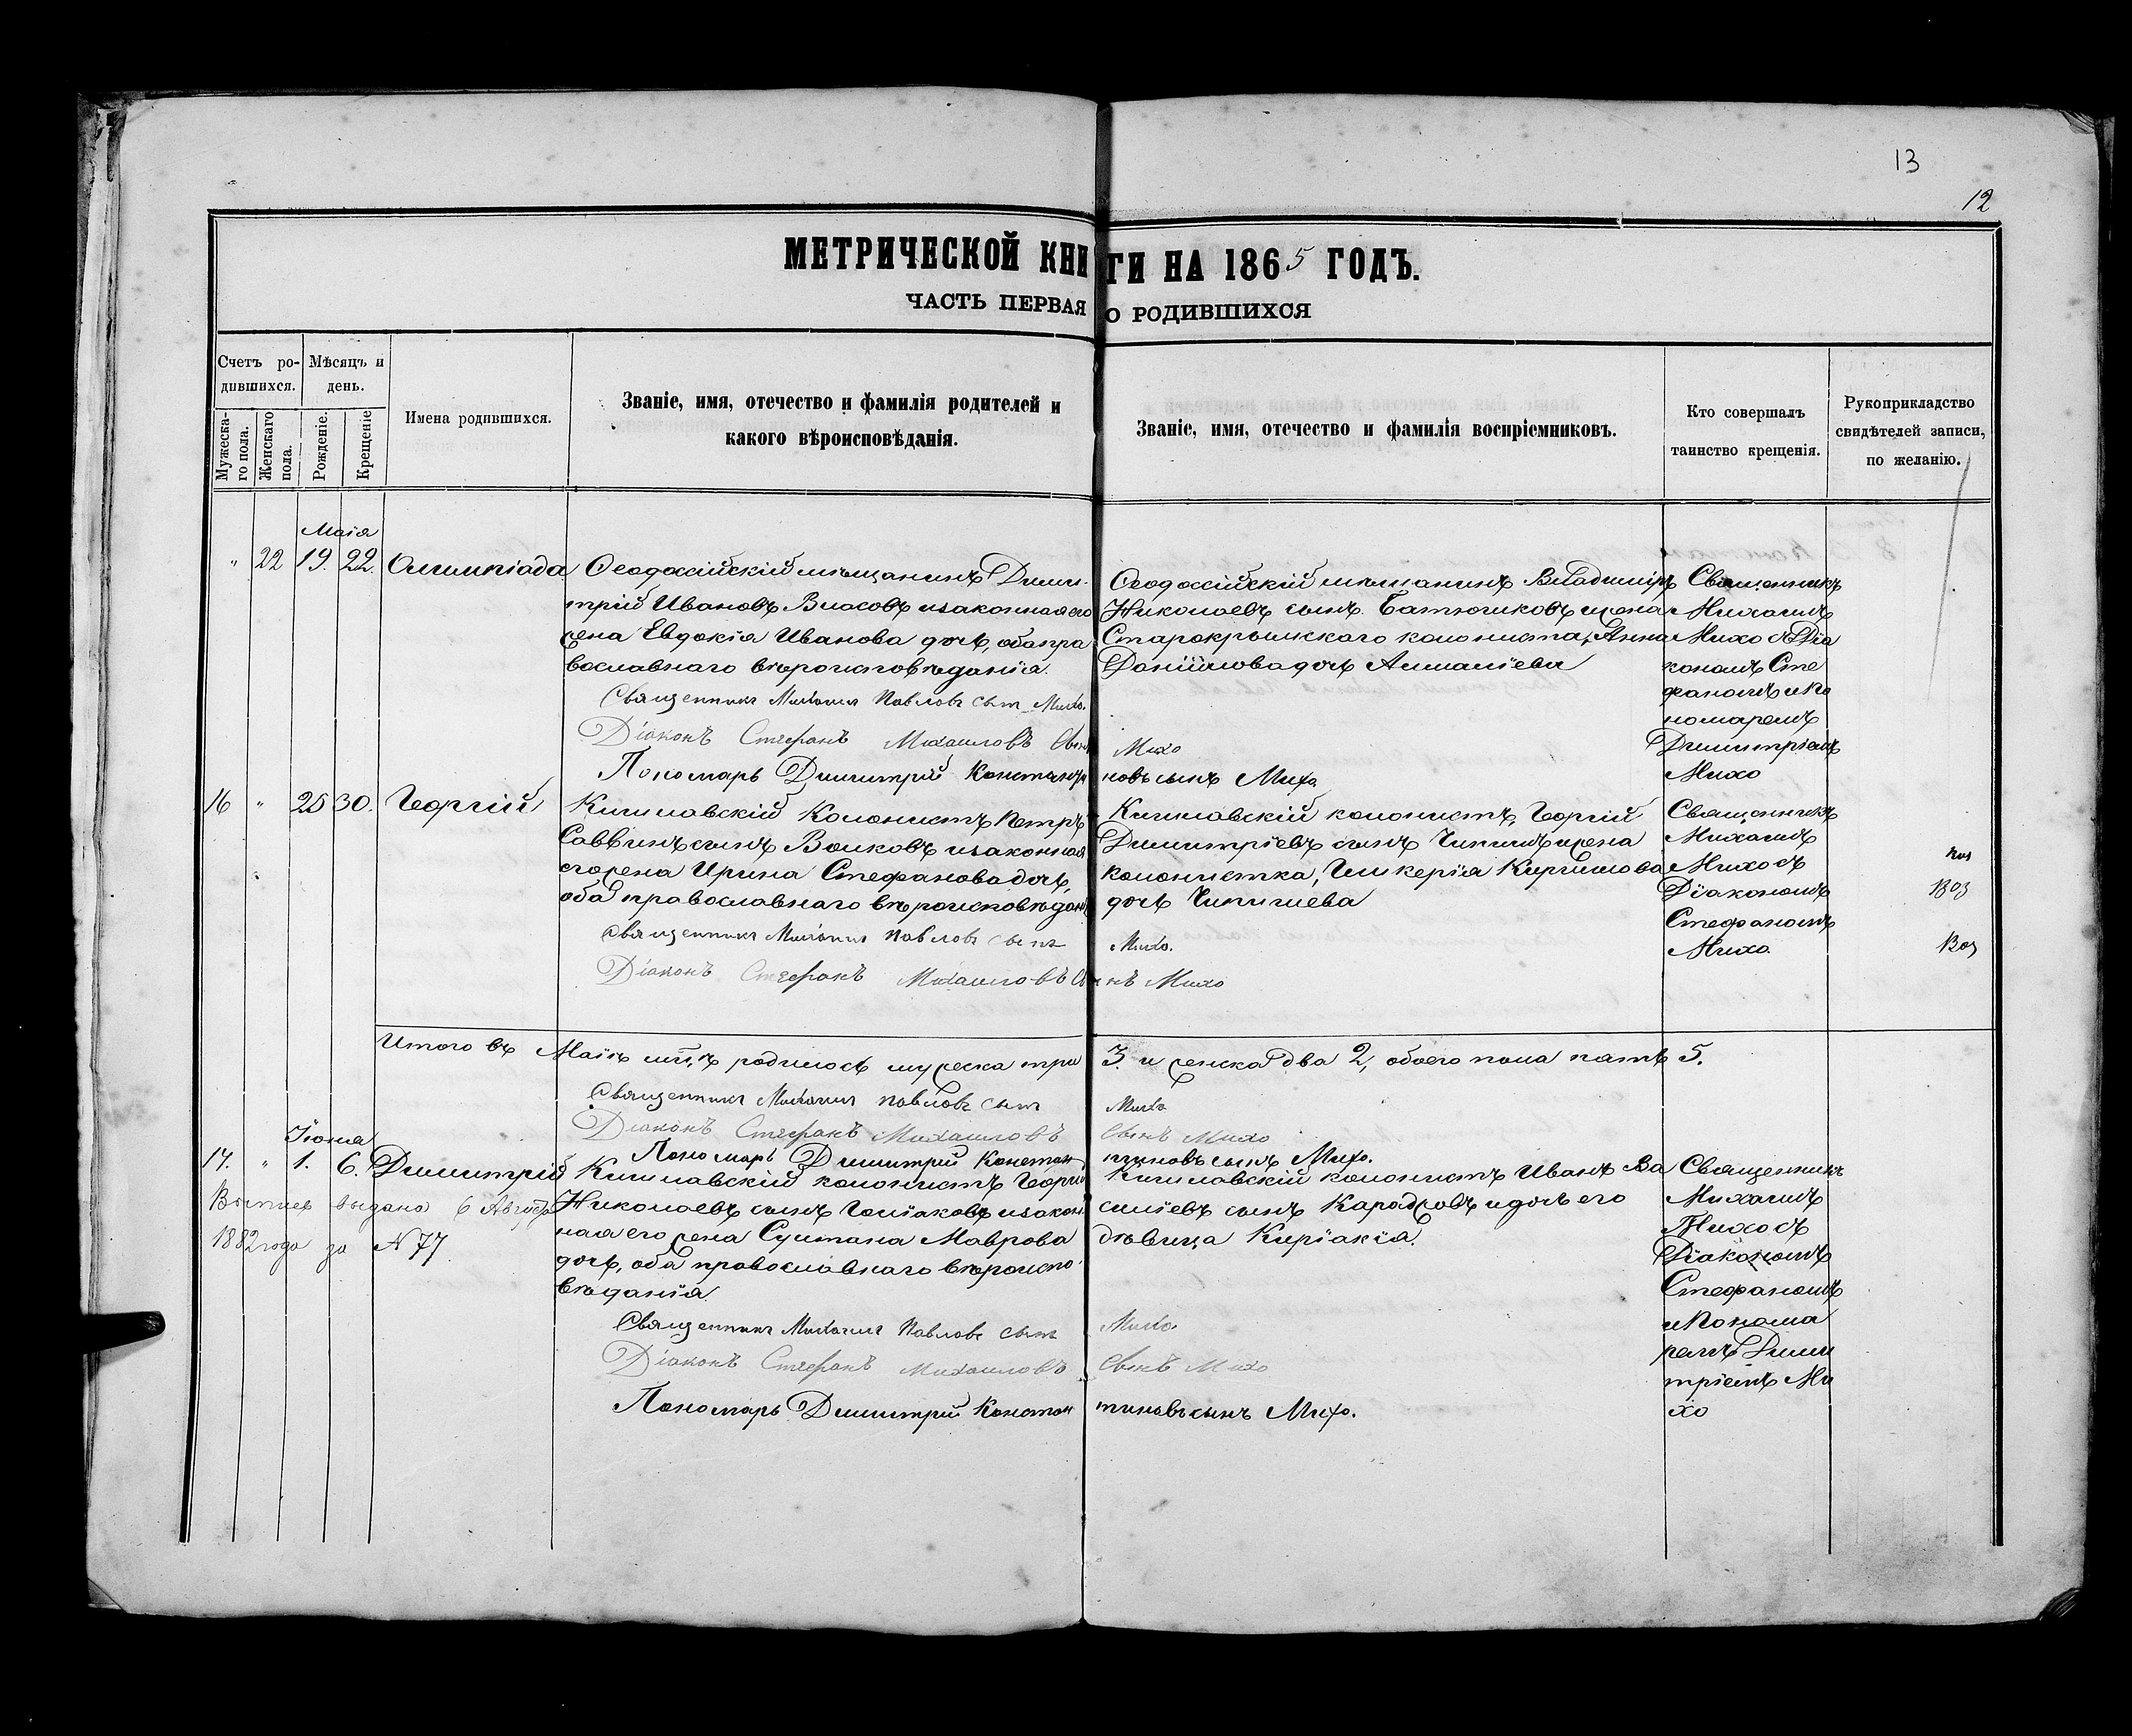 13
12
МЕТРИЧЕСКОЙ КНИГИ НА 1865 ГОДЪ.
ЧАСТЬ ПЕРВАЯ О РОДИВШИХСЯ
Счетъ ро-
дившихся.
Мужеска-
го пола.
Женскаго
пола.
Мѣсяцъ и
день.
Рожденіе.
Крещеніе
Имена родившихся.
Званіе, имя, отечество и фамилія родителей и
какого вѣроисповѣданія.
Званіе, имя, отечество и фамилія воспріемниковъ.
Кто совершалъ
таинство крещенія.
Рукоприкладство
свидѣтелей записи,
по желанію.
Маія
" 22 19. 22. Олимпіада
Ѳеодосійскій мѣщанинъ Дими-
трій Ивановъ Власовъ и законная его
жена Евдокія Иванова дочь, оба пра
вославнаго вѣроисповѣданія.
Священникъ Михаилъ Павловъ сынъ Михо.
Діаконъ Стефанъ Михаиловъ сынъ Михо
Пономарь Димитрій Константиновъ сынъ Михо.
Ѳеодосійскій мѣщанинъ Владиміръ
Николаевъ сынъ Батюшковъ и жена
Старокрымскаго колониста, Анна
Даніилова дочь
Священникъ
Михаилъ
Михо съ Діа
кономъ Сте
фаномъ и По
номаремъ
Димитріемъ
Михо
16 " 25 30. Георгій
Кишлавскій Колонистъ Петръ
Саввинъ сынъ Волковъ и законная
его жена Ирина Стефанова дочь,
оба православнаго вѣроисповѣдан
Священникъ Михаилъ Павловъ сынъ Михо.
Діаконъ Стефанъ Михаиловъ сынъ Михо
Кишлавскій колонистъ, Георгій
Димитріевъ сынъ и жена
колонистка, Гликерія
дочь
Священникъ
Михаилъ
Михо съ
Діакономъ
Стефаномъ
Михо.
Итого въ Маіѣ м-цѣ родилось мужеска три 3. и женска два 2, обоего пола пять 5.
Священникъ Михаилъ Павловъ сынъ Михо
Діаконъ Стефанъ Михаиловъ сынъ Михо
Пономарь Димитрій Константиновъ сынъ Михо.
Іюня
17. " 1. 6. Димитрій
Выпись выдана 6 Августа
1882 года за N 77.
Кишлавскій колонистъ Георгій
Николаевъ сынъ и закон
ная его жена Султана Маврова
дочь, оба православнаго вѣроиспо
вѣданія.
Священникъ Михаилъ Павловъ сынъ Михо.
Діаконъ Стефанъ Михаиловъ сынъ Михо
Пономарь Димитрій Константиновъ сынъ Михо.
Кишлавскій колонистъ Иванъ Ва
силіевъ сынъ Караджовъ и дочь его
дѣвица Киріакія.
Священникъ
Михаилъ
Михо съ
Діакономъ
Стефаномъ
и Понома
ремъ Дими
тріемъ Ми
хо